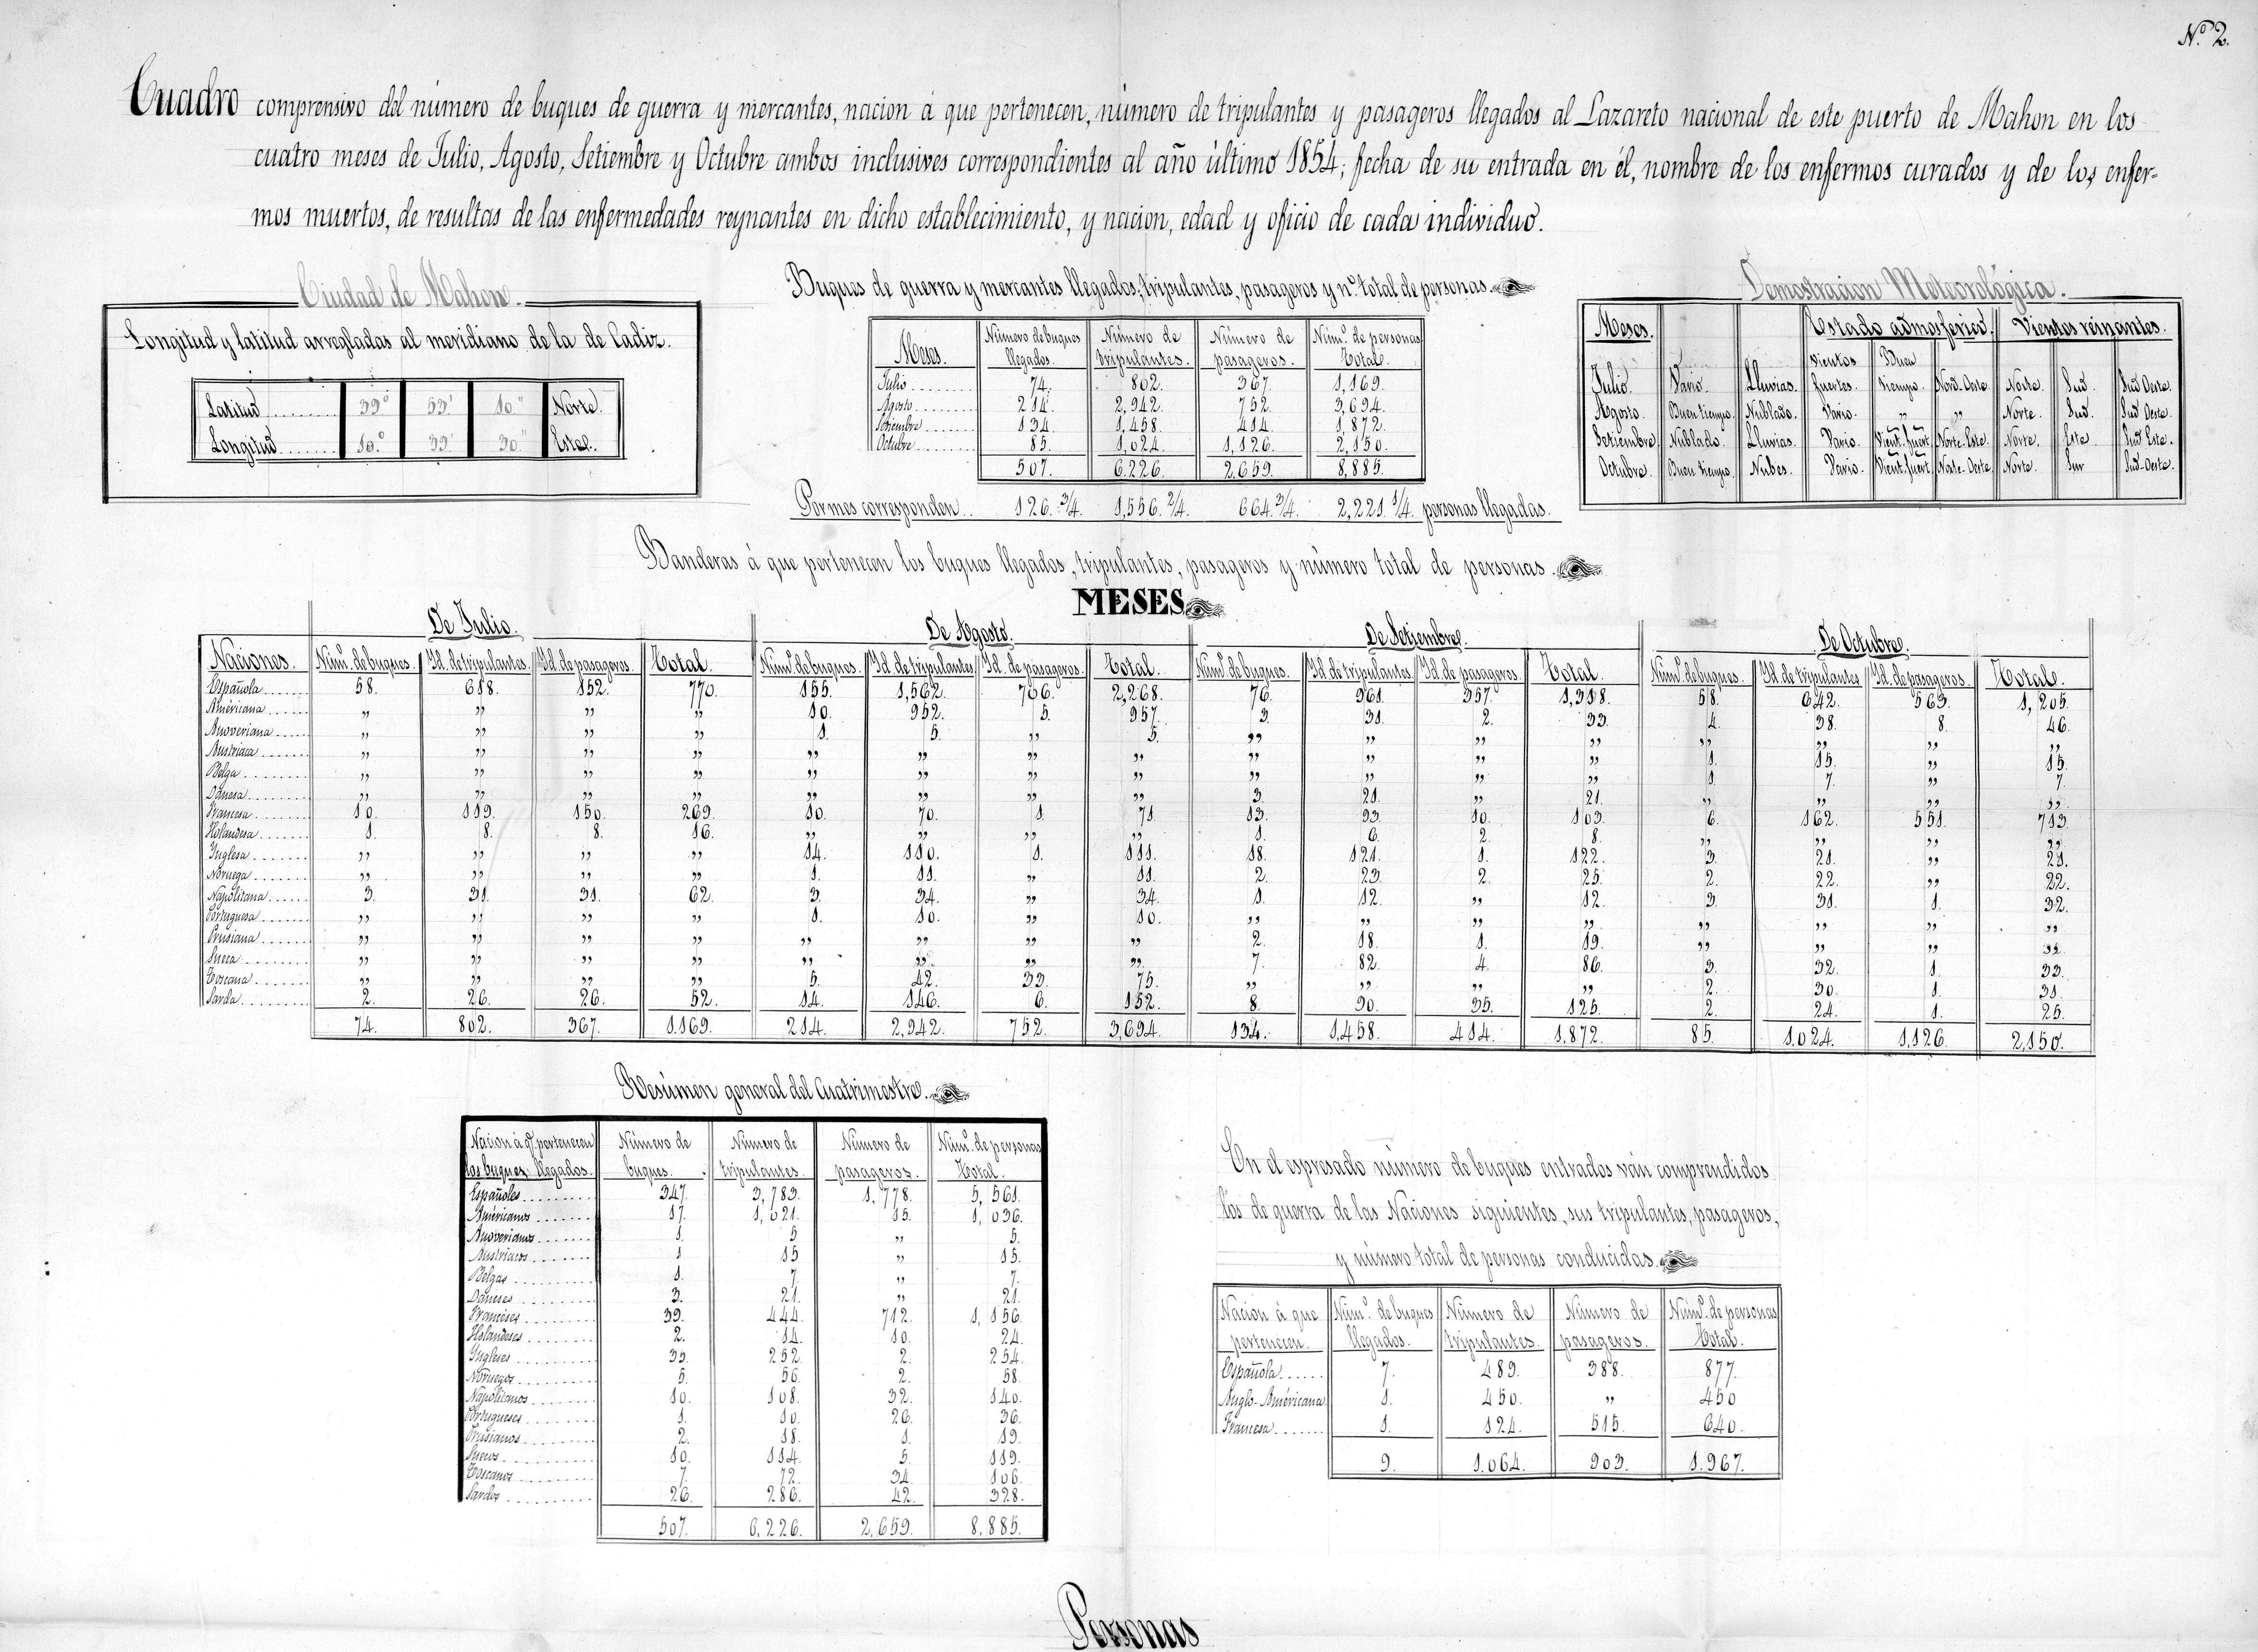 Nº 2.
Cuadro comprensivo del número de buques de guerra y mercantes, nacion á que pertenecen, número de tripulantes y pasageros llegados al Lazareto nacional de este puerto de Mahon en los
cuatro meses de Julio, Agosto, Setiembre y Octubre ambos inclusives correspondientes al año último 1854; fecha de su entrada en él, nombre de los enfermos curados y de los enfer-
mos muertos, de resultas de las enfermedades reynantes en dicho establecimiento, y nacion, edad y oficio de cada individuo.
Ciudad de Mahon.
Longitud y latitud arregladas al meridiano de la de Cadiz.
Latitud 39º 53' 10" Norte.
Longitud 10º 39' 30" Este.
Buques de guerra y mercantes llegados, tripulantes, pasageros y nº total de personas.
Meses. Número de buques llegados. Número de tripulantes. Número de pasageros. Núm.º de personas Total.
Julio 74. 802. 367. 1,169.
Agosto 214. 2,942. 752. 3,694.
Setiembre 134. 1,458. 414. 1,872.
Octubre 85. 1,024. 1,126. 2,150.
507. 6,226. 2,659. 8,885.
Por mes corresponden 126.3/4. 1,556.2/4. 664.3/4. 2,221.1/4. personas llegadas.
Demostracion Meteorológica.
Meses. Estado admosferico. Vientos reinantes.
Julio. Vario. Lluvias. Vientos fuertes. Buen tiempo. Nord-Oeste. Norte. Sud. Sud Oeste.
Agosto. Buen tiempo. Nublado. Vario. " " Norte. Sud. Sud Oeste.
Setiembre. Nublado. Lluvias. Vario. Vient. fuert. Norte-Este. Norte. Este Sud Este.
Octubre. Buen tiempo. Nubes. Vario. Vient. fuert. Norte-Oeste. Norte. Sur Sud-Oeste.
Banderas á que pertenecen los buques llegados, tripulantes, pasageros y número total de personas.
MESES
De Julio. De Agosto. De Setiembre. De Octubre.
Naciones. Núm.º de buques. Id. de tripulantes. Id. de pasageros. Total. Núm.º de buques. Id. de tripulantes. Id. de pasageros. Total. Núm.º de buques. Id. de tripulantes. Id. de pasageros. Total. Núm.º de buques. Id. de tripulantes. Id. de pasageros. Total.
Española 58. 618. 152. 770. 155. 1,562. 706. 2,268. 76. 961. 357. 1,318. 58. 642. 563. 1,205.
Américana " " " " 10. 952. 5. 957. 3. 31. 2. 33. 4. 38. 8. 46.
Anoveriana " " " " 1. 5. " 5. " " " " " " " "
Austriaca " " " " " " " " " " " " 1. 15. " 15.
Belga " " " " " " " " " " " " 1. 7. " 7.
Danesa " " " " " " " " 3. 21. " 21. " " " "
Francesa 10. 119. 150. 269. 10. 70. 1. 71. 13. 93. 10. 103. 6. 162. 551. 713.
Holandesa 1. 8. 8. 16. " " " " 1. 6. 2. 8. " " " "
Inglesa " " " " 14. 110. 1. 111. 18. 121. 1. 122. 3. 21. " 21.
Noruega " " " " 1. 11. " 11. 2. 23. 2. 25. 2. 22. " 22.
Napolitana 3. 31. 31. 62. 3. 34. " 34. 1. 12. " 12. 3. 31. 1. 32.
Portuguesa " " " " 1. 10. " 10. " " " " " " " "
Prusiana " " " " " " " " 2. 18. 1. 19. " " " "
Sueca " " " " " " " " 7. 82. 4. 86. 3. 32. 1. 33.
Toscana " " " " 5. 42. 33. 75. " " " " 2. 30. 1. 31.
Sarda 2. 26. 26. 52. 14. 146. 6. 152. 8. 90. 35. 125. 2. 24. 1. 25.
74. 802. 367. 1.169. 214. 2,942. 752. 3,694. 134. 1,458. 414. 1,872. 85. 1,024. 1,126. 2,150.
Resúmen general del Cuatrimestre.
Nacion á q.e pertenecen los buques llegados. Número de buques. Número de tripulantes. Número de pasageros. Núm.º de personas Total.
Españoles 347. 3,783. 1,778. 5,561.
Américanos 17. 1,021. 15. 1,036.
Anoverianos 1. 5 " 5.
Austriacos 1 15 " 15.
Belgas 1. 7. " 7.
Daneses 3. 21. " 21.
Franceses 39. 444. 712. 1,156.
Holandeses 2. 14. 10. 24.
Ingleses 35. 252. 2. 254.
Noruegos 5. 56. 2. 58.
Napolitanos 10. 108. 32. 140.
Portugueses 1. 10. 26. 36.
Prusianos 2. 18. 1. 19.
Suecos 10. 114. 5. 119.
Toscanos 7. 72. 34. 106.
Sardos 26. 286. 42. 328.
507. 6,226. 2,659. 8,885.
En el espresado número de buques entrados ván comprendidos
los de guerra de las Naciones siguientes, sus tripulantes, pasageros,
y número total de personas conducidas.
Nacion á que pertenecen. Núm.º de buques llegados. Número de tripulantes. Número de pasageros. Núm.º de personas Total.
Española 7. 489. 388. 877.
Anglo-Américana 1. 450. " 450
Francesa 1. 124. 515. 640.
9. 1.064. 903. 1.967.
Personas